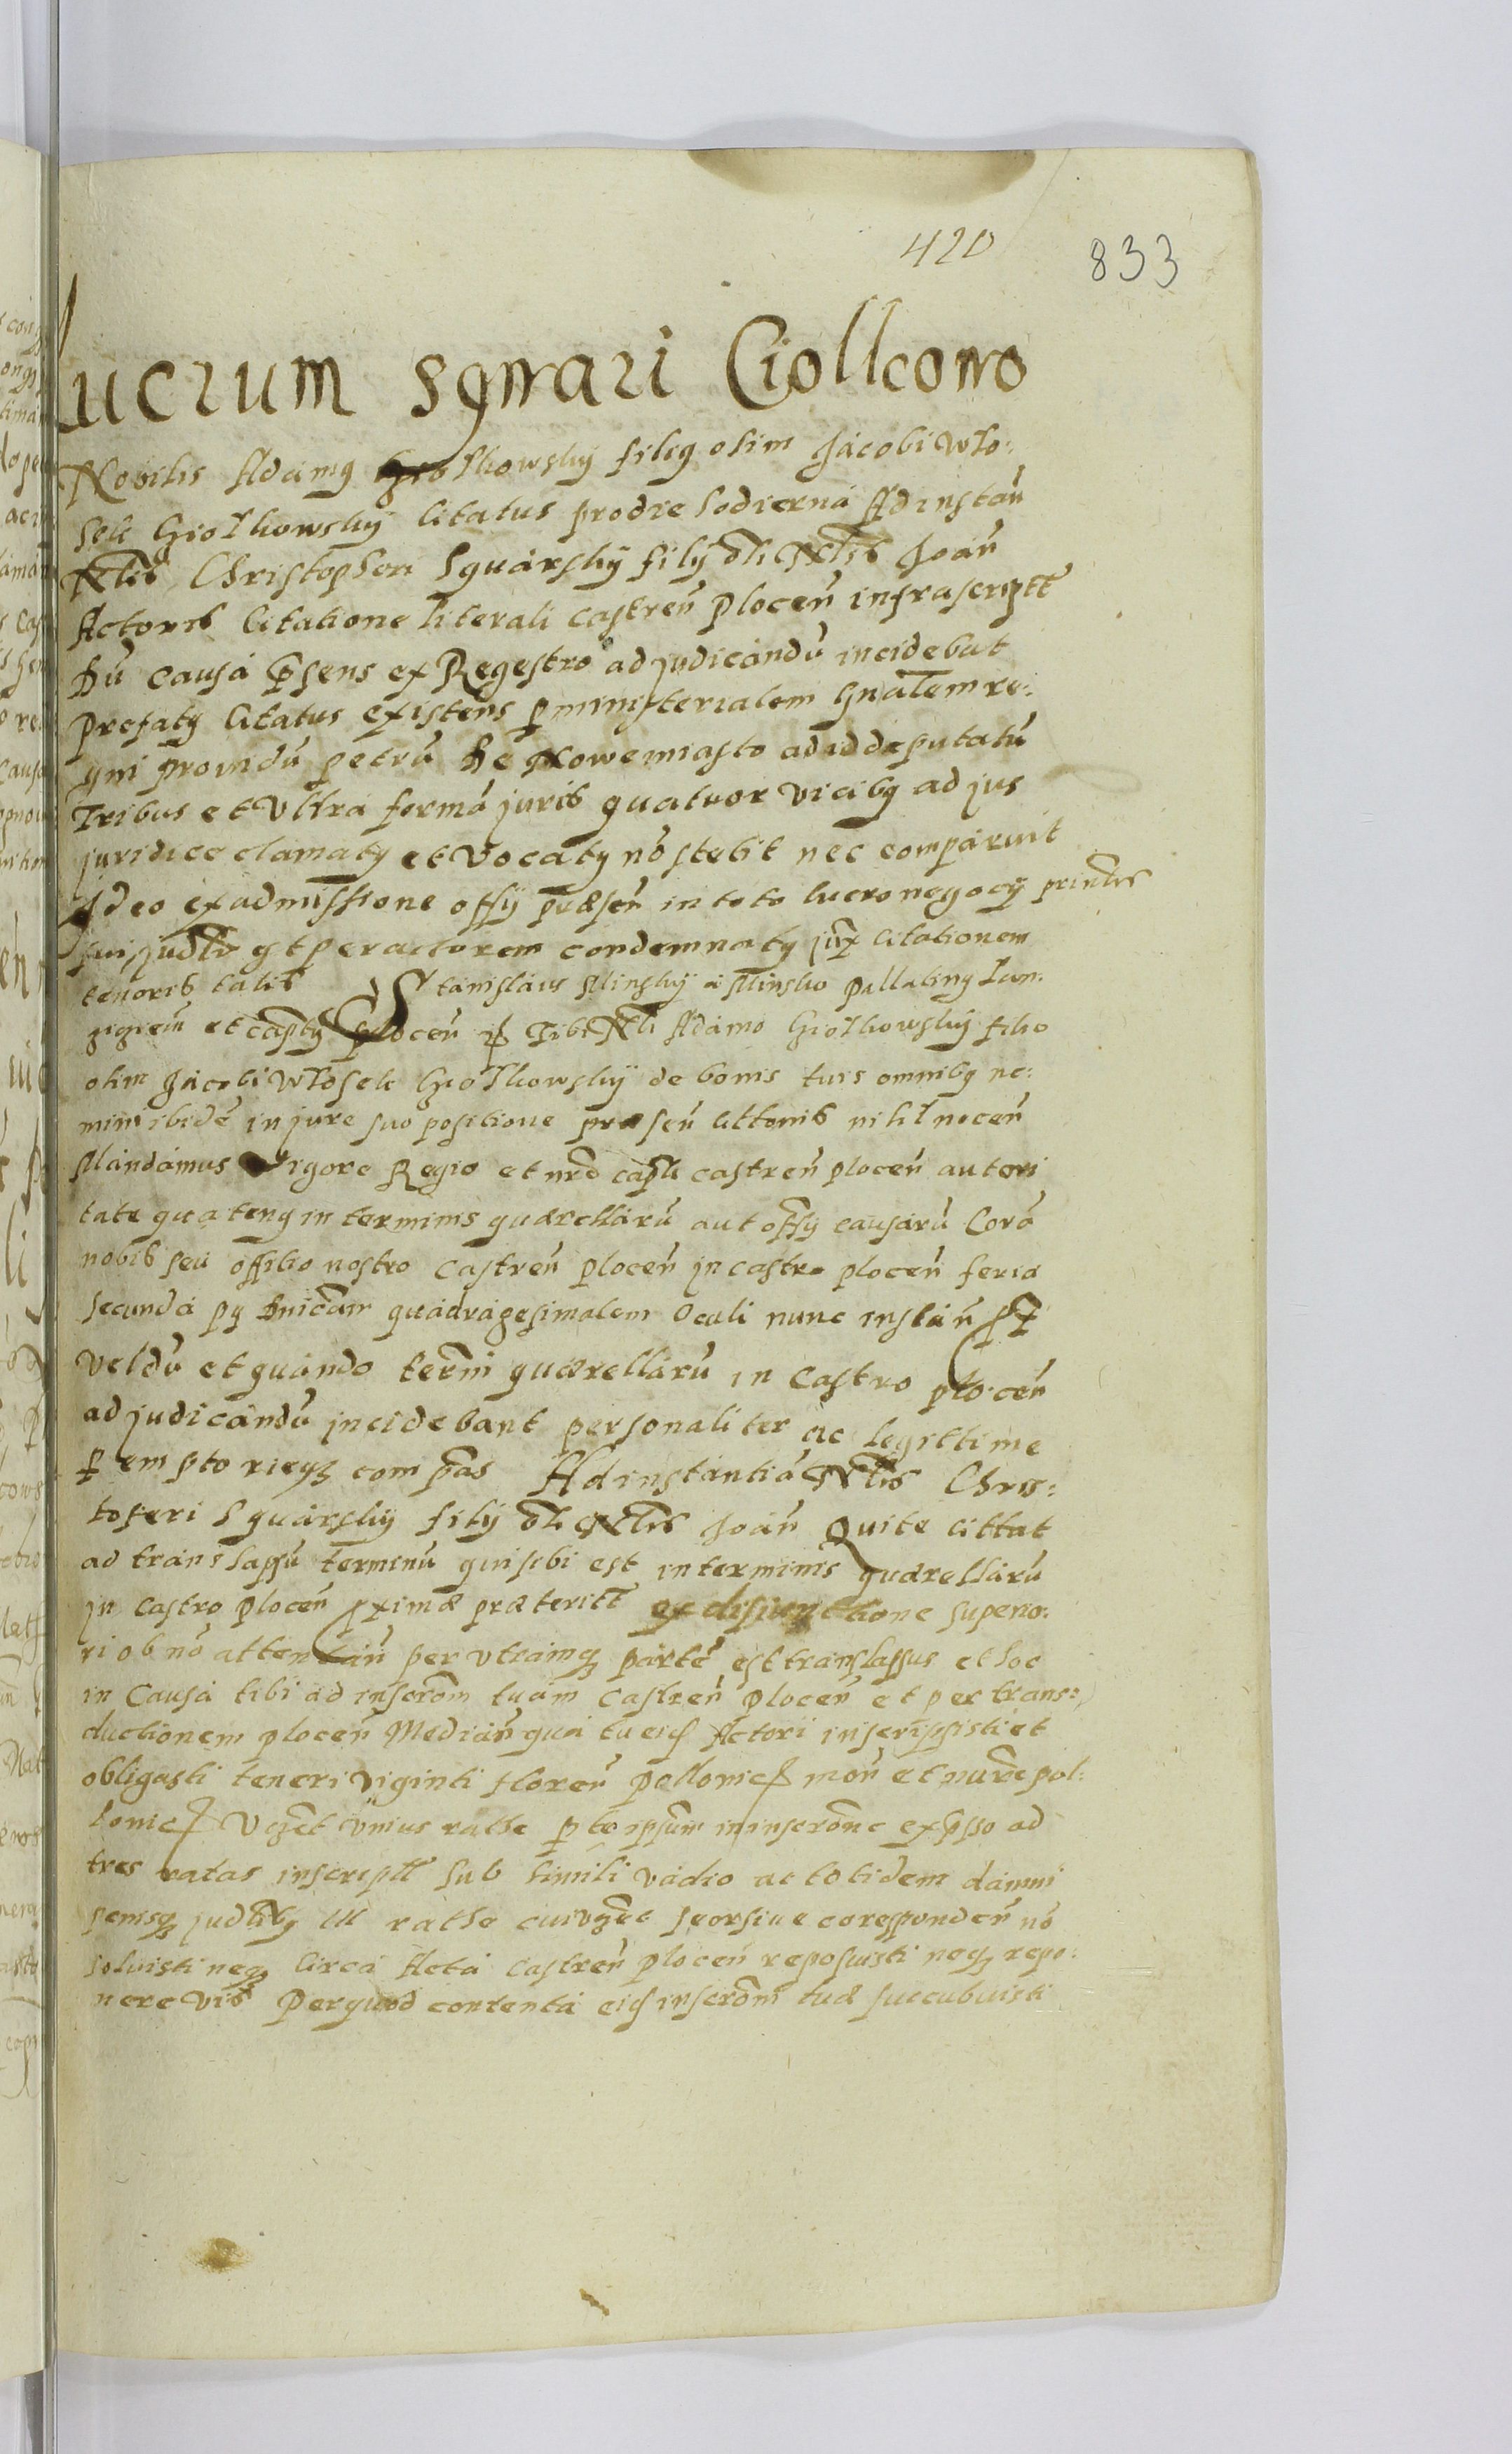 420
833
Lucrum sqwari Ciollcowo
Nobilis Adamq Giołkowskÿ filiq olim Jacobi Wło:
sek Giołkowskÿ Citatus pro die hodierna Ad instan̄
Nłis Christophori Squarskÿ filÿ ołi Nłis Joan̄
Actoris Citatione literali castren̄ plocen̄ infrascriptt
Dū causa p̄sens ex Regestro ad judicandū incidebat
prefatq Citatus existens p ministerialem Gn̄alem re:
gni providū petrū de Nowemiasto ad id deputatū
Tribus et Ultra formā juris quatuor vicibq ad jus
juridice clamatq et Vocatq nō stetit nec comparuit
Ideo ex admissione offÿ præsen̄ in toto lucro negocÿ
sui est per actorem condemnatq juxᵃ citationem
tenoris talis Stanislaus Minskÿ a Minsko Pallatinq Lan:
cicien̄ et capłq plocen̄ Tibi Nłi Adamo Giołkowskÿ filio
olim Jacobi Włosek Giołkowskÿ de bonis tuis omnibq ne:
mini ibidē in jure suo positione præsen̄ cittonis nihil nocen̄
Mandamus Vigore Regio et nr̄a capłi castren̄ plocen̄ autori
tate quatenq in terminis quærellarū aut offÿ causarū Corā
nobis seu offitio nostro Castren̄ plocen̄ in castro plocen̄ feria
secunda pq dnicam quadragesimalem Oculi nunc instan̄
vel dū et quando term̄i quærellarū in Castro plocen̄
ad judicandū incidebant personaliter ac legittime
pemptorieqz compas Ad instantiā Nłis Chris:
toferi Squarskÿ filÿ ołi Nłis Joan̄ Qui te cittat
ad translapsū terminū qui sibi est in terminis quærellarū
in Castro plocen̄ pximæ præteritt ex disiunctione superio:
ri ob nō attentan̄ per utramqz partē est translapsus et hoc
in Causa tibi ad inscrōm tuam Castren̄ plocen̄ et per trans:
ductionem plocen̄ Median̄ qua tu eid Actori inscripsisti et
obligasti teneri Viginti floren̄ pollonic mon̄ et nur̄e pol:
lonic unius rathe p te ipsum in inscrōne exp̄sso ad
tres ratas inscriptt sub simili vadio ac totidem damni
penisqz judłibq rathe cuiuslt seorsive corresponden̄ nō
solvisti neqz Circa Acta castren̄ plocen̄ reposuisti neqz repo:
nere vis Per quod contenta eid inscrōni tuæ succubuisti